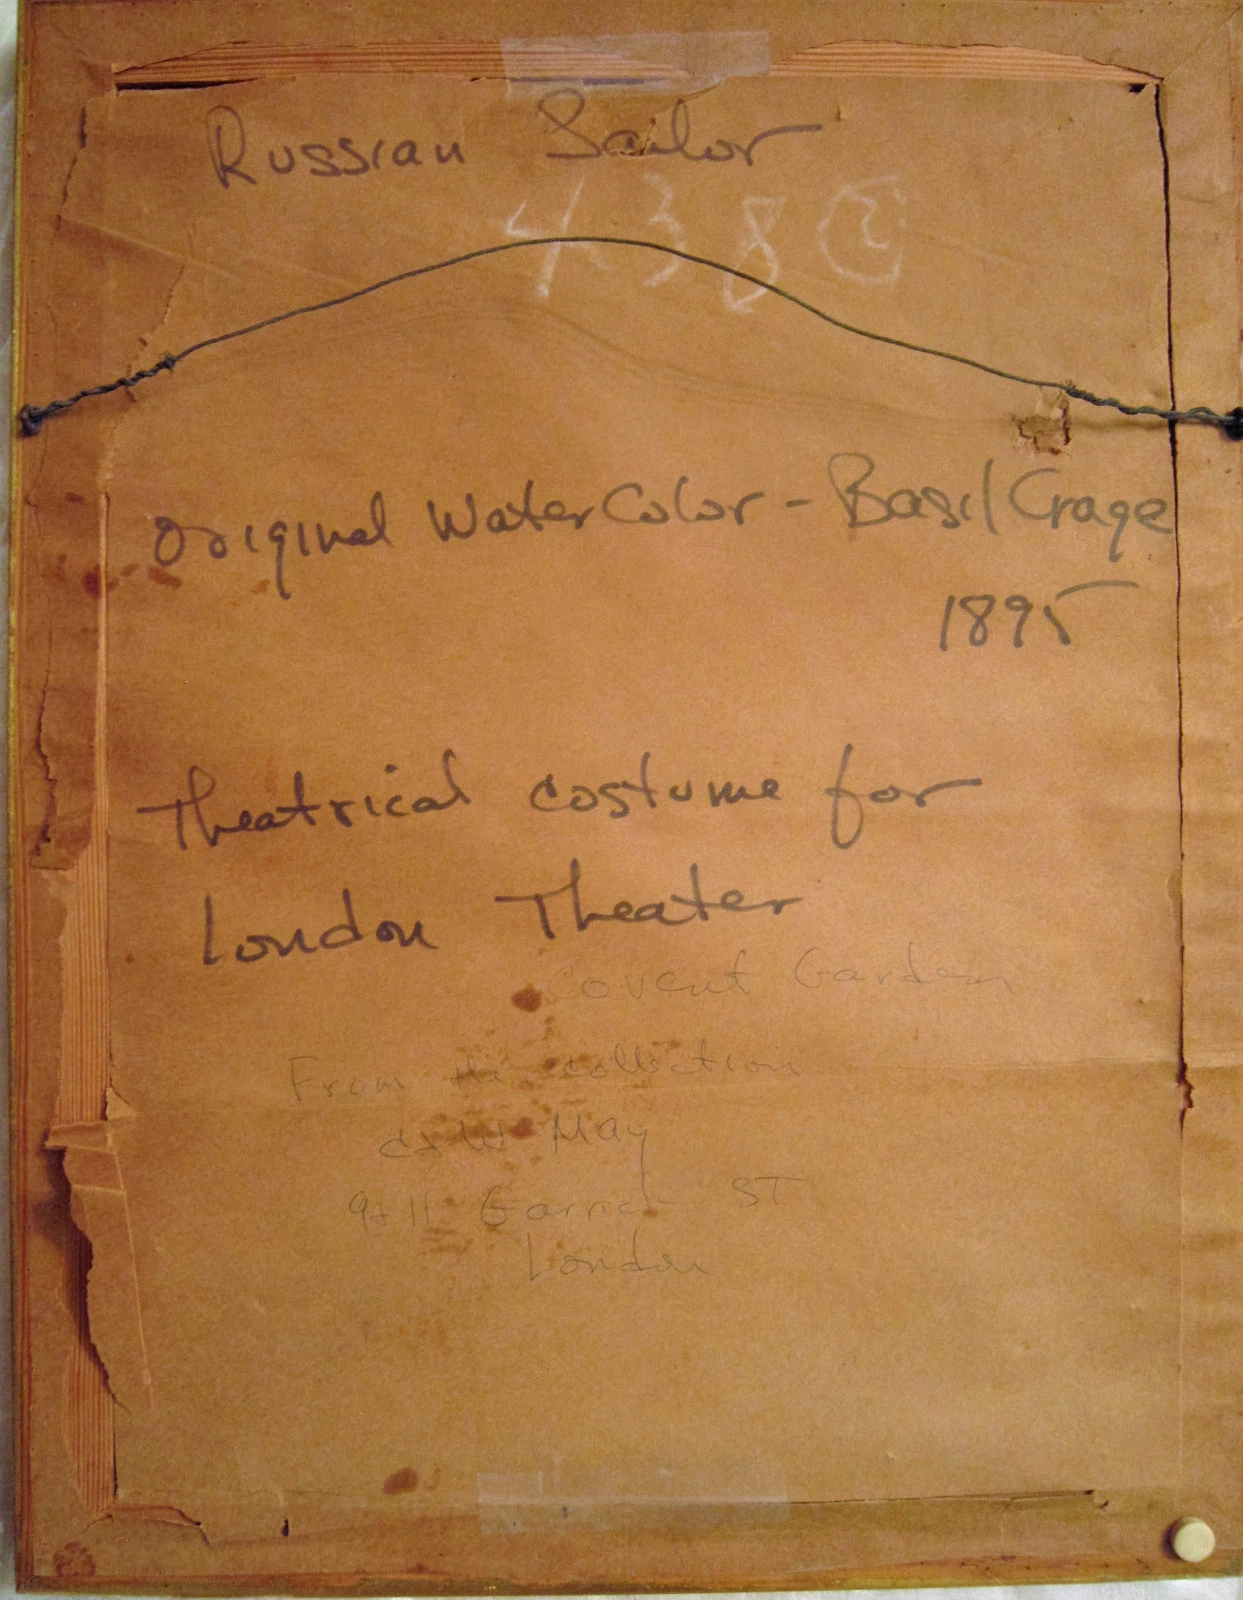 Russian Sailor
438
Original WaterColor - Basil Crage
1895
Theatrical costume for
London Theater
Covent Garden
From the collection
of W May
9+11 Garrick ST
London